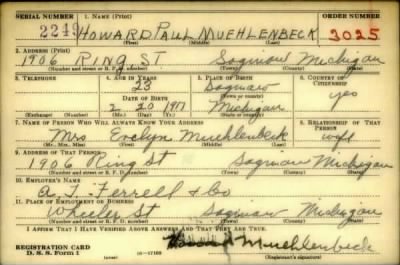 SERIAL NUMBER 1. NAME (Print) ORDER NUMBER
2249 HOWARD PAUL MUEHLENBECK 3025
(First) (Middle) (Last)
2. ADDRESS (Print)
1906 RING ST Saginaw Michigan
(Number and street or R. F. D. number) (Town) (County) (State)
3. TELEPHONE 4. AGE IN YEARS 5. PLACE OF BIRTH 6. COUNTRY OF CITIZENSHIP
23 Saginaw
DATE OF BIRTH (Town or county) yes
2 20 1917 Michigan
(Exchange) (Number) (Mo.) (Day) (Yr.) (State or country)
7. NAME OF PERSON WHO WILL ALWAYS KNOW YOUR ADDRESS 8. RELATIONSHIP OF THAT PERSON
Mrs Evelyn Muehlenbeck wife
(Mr., Mrs., Miss) (First) (Middle) (Last)
9. ADDRESS OF THAT PERSON
1906 Ring St Saginaw Michigan
(Number and street or R. F. D. number) (Town) (County) (State)
10. EMPLOYER'S NAME
A. T. Ferrell & Co
11. PLACE OF EMPLOYMENT OR BUSINESS
Wheeler St Saginaw Michigan
(Number and street or R. F. D. number) (Town) (County) (State)
I AFFIRM THAT I HAVE VERIFIED ABOVE ANSWERS AND THAT THEY ARE TRUE.
REGISTRATION CARD
D. S. S. Form 1 (over) Howard Muehlenbeck
(Registrant's signature)